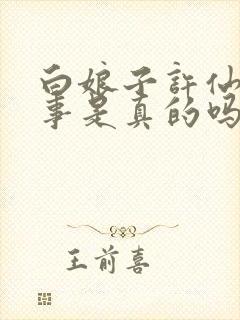 白娘子許仙
事是真的吗
王前喜